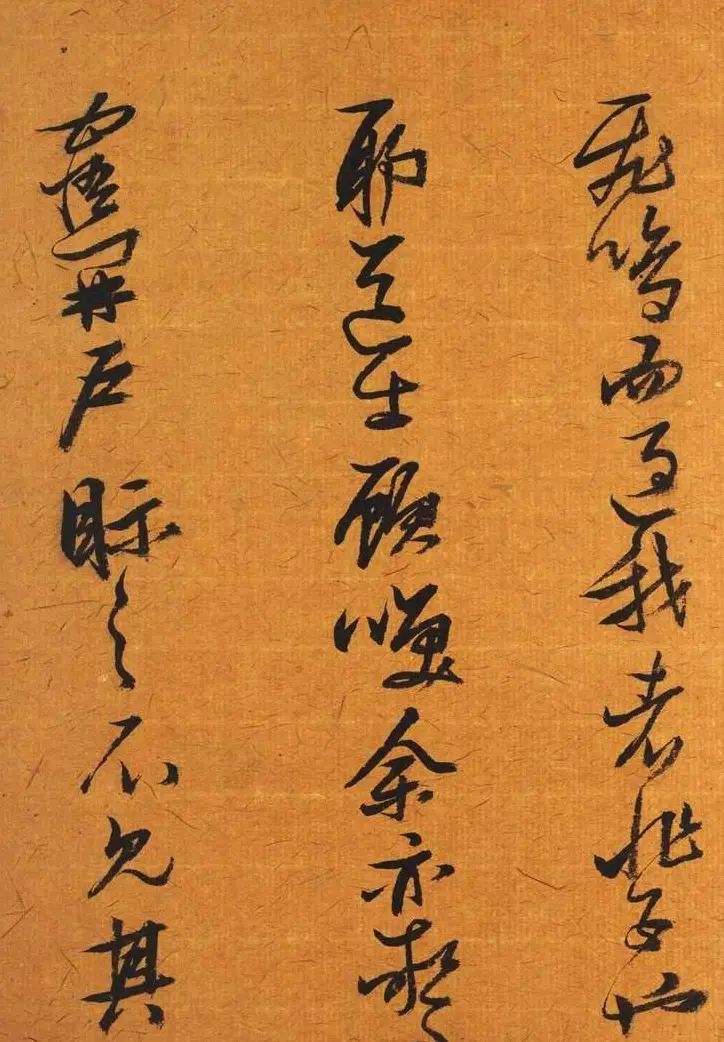 飛鳴而過我者非子也
耶道士顧笑余亦驚
寤開户視之不見其